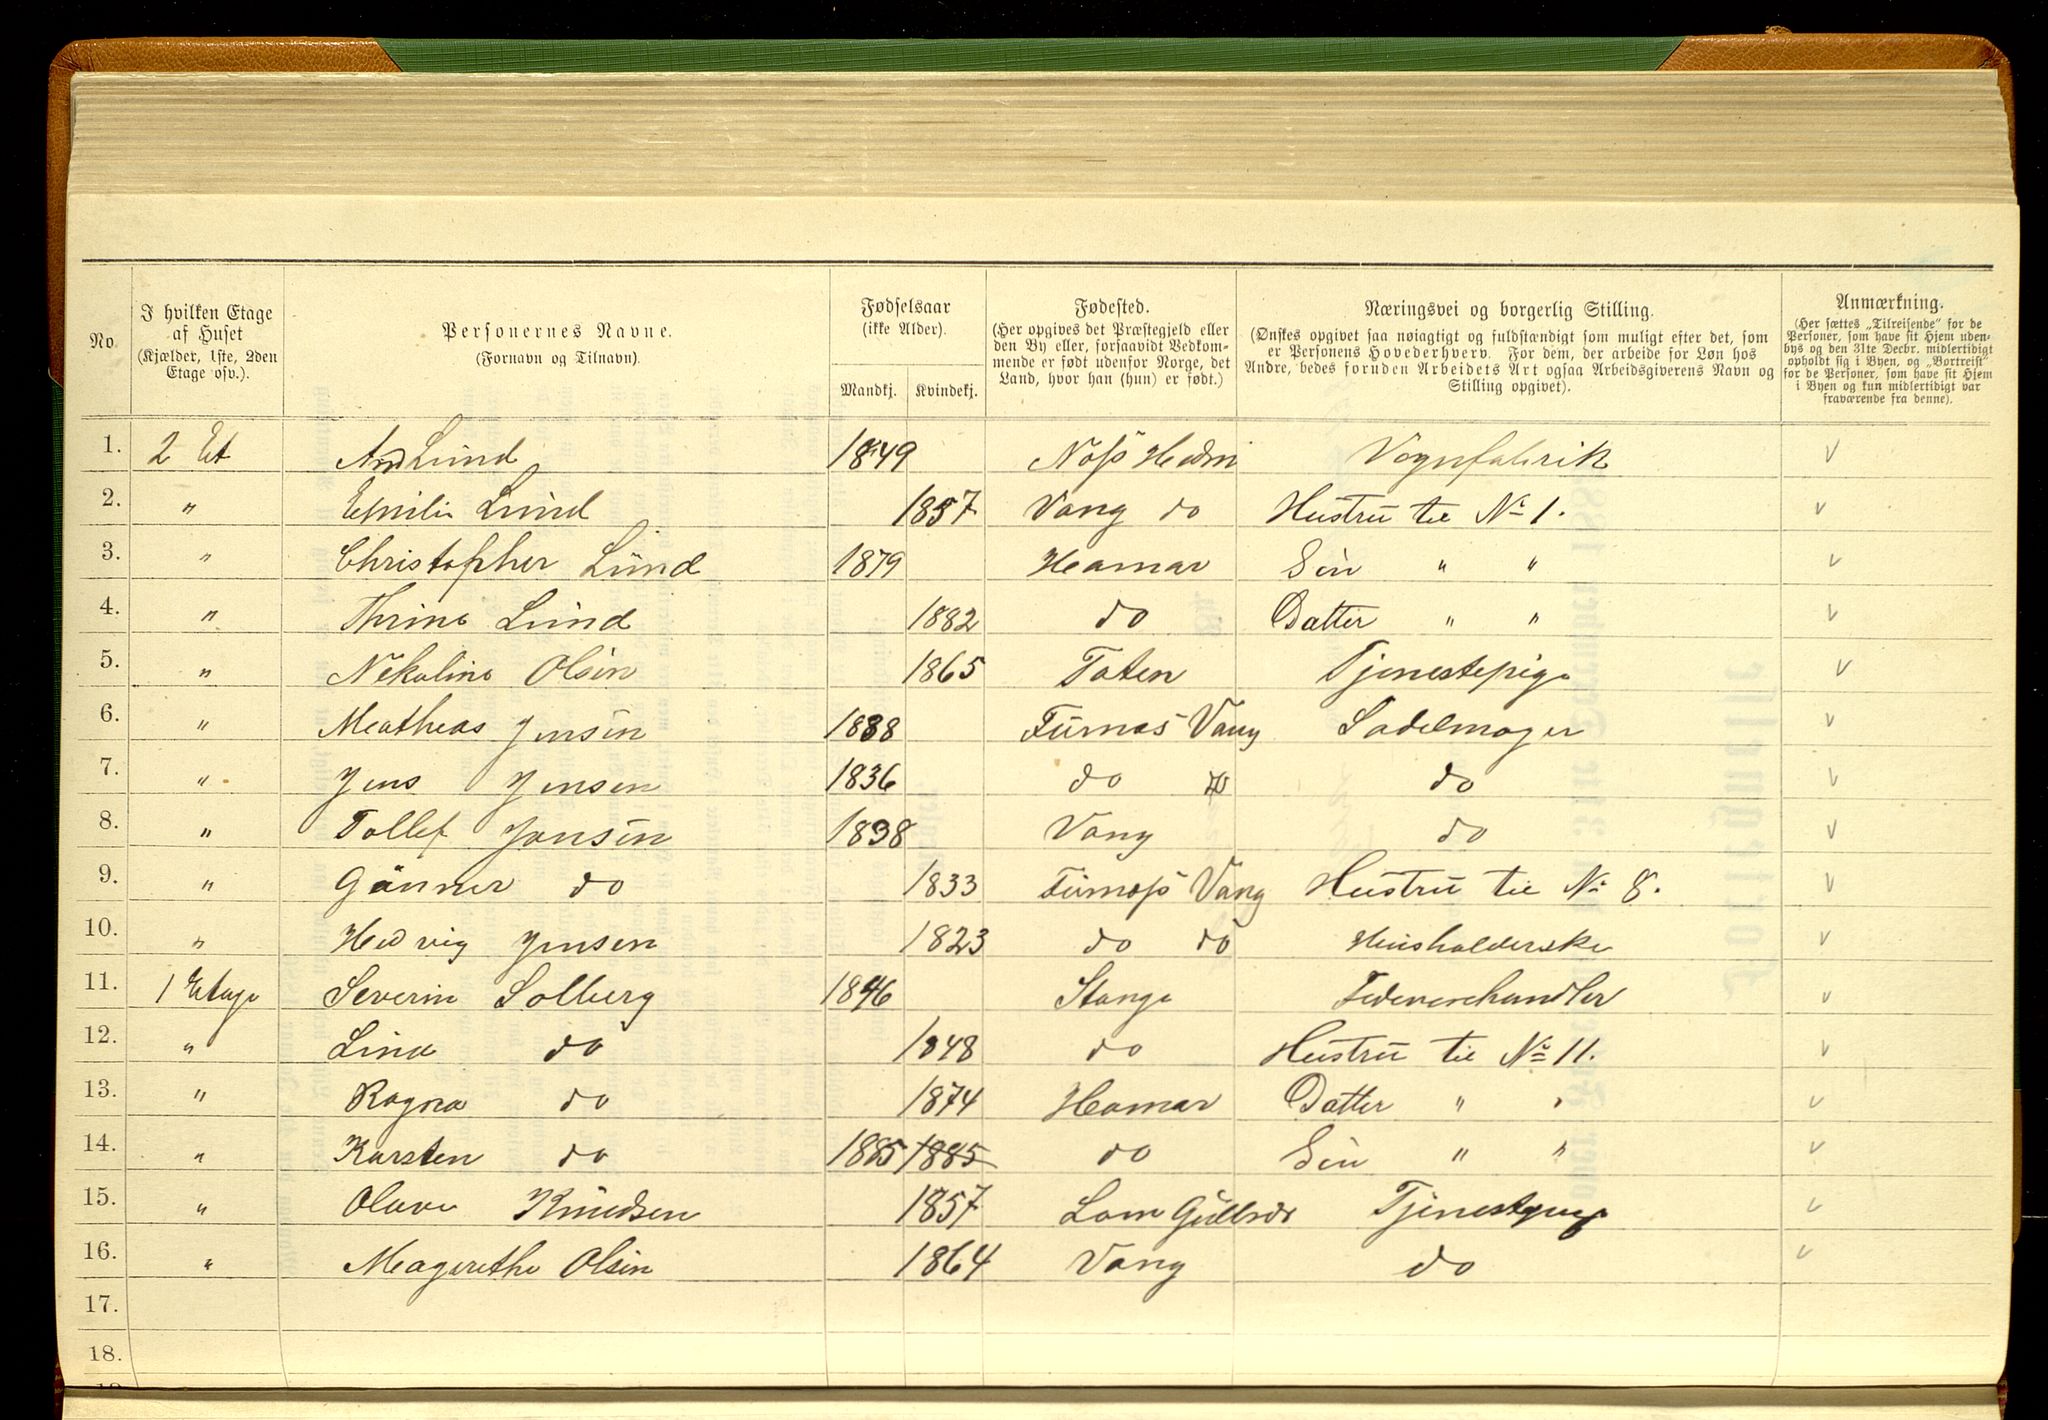 No
I hvilken Etage
af Huset
(Kjælder, 1ste, 2den
Etage osv.).
Personernes Navne.
(Fornavn og Tilnavn).
Fødselsaar
(ikke Alder).
Mandkj. Kvindekj.
Fødested.
(Her opgives det Præstegjeld eller
den By eller, forsaavidt Vedkom-
mende er født udenfor Norge, det
Land, hvor han (hun) er født.)
Næringsvei og borgerlig Stilling.
(Ønskes opgivet saa nøiagtigt og fuldstændigt som muligt efter det, som
er Personens Hovederhverv. For dem, der arbeide for Løn hos
Andre, bedes foruden Arbeidets Art ogsaa Arbeidsgiverens Navn og
Stilling opgivet).
Anmærkning.
(Her sættes „Tilreisende“ for de
Personer, som have sit Hjem uden-
bys og den 31te Decbr. midlertidigt
opholdt sig i Byen, og „Bortreist“
for de Personer, som have sit Hjem
i Byen og kun midlertidigt var
fraværende fra denne).
1. 2 Et And Lund 1849 Næs Hedm Vognfabrik
2. " Emilie Lund 1857 Vang do Hustru til No 1.
3. " Christopher Lund 1879 Hamar Søn " "
4. " Thrine Lund 1882 do Datter " "
5. " Nekoline Olsen 1865 Toten Tjenestepige
6. " Mathias Jensen 1838 Furnæs Vang Sadelmager
7. " Jens Jensen 1836 do do do
8. " Tollef Jansen 1838 Vang do
9. " Gunner do 1833 Furnæs Vang Hustru til No 8.
10. " Hedvig Jensen 1823 do do Husholderske
11. 1 Etage Severin Solberg 1846 Stange Fedevarehandler
12. " Lina do 1848 do Hustru til No 11.
13. " Ragna do 1874 Hamar Datter " "
14. " Karsten do 1885 1885 do Søn " "
15. " Olave Knudsen 1857 Lom Gulbrdr Tjenestepige
16. " Magarethe Olsen 1864 Vang do
17.
18.